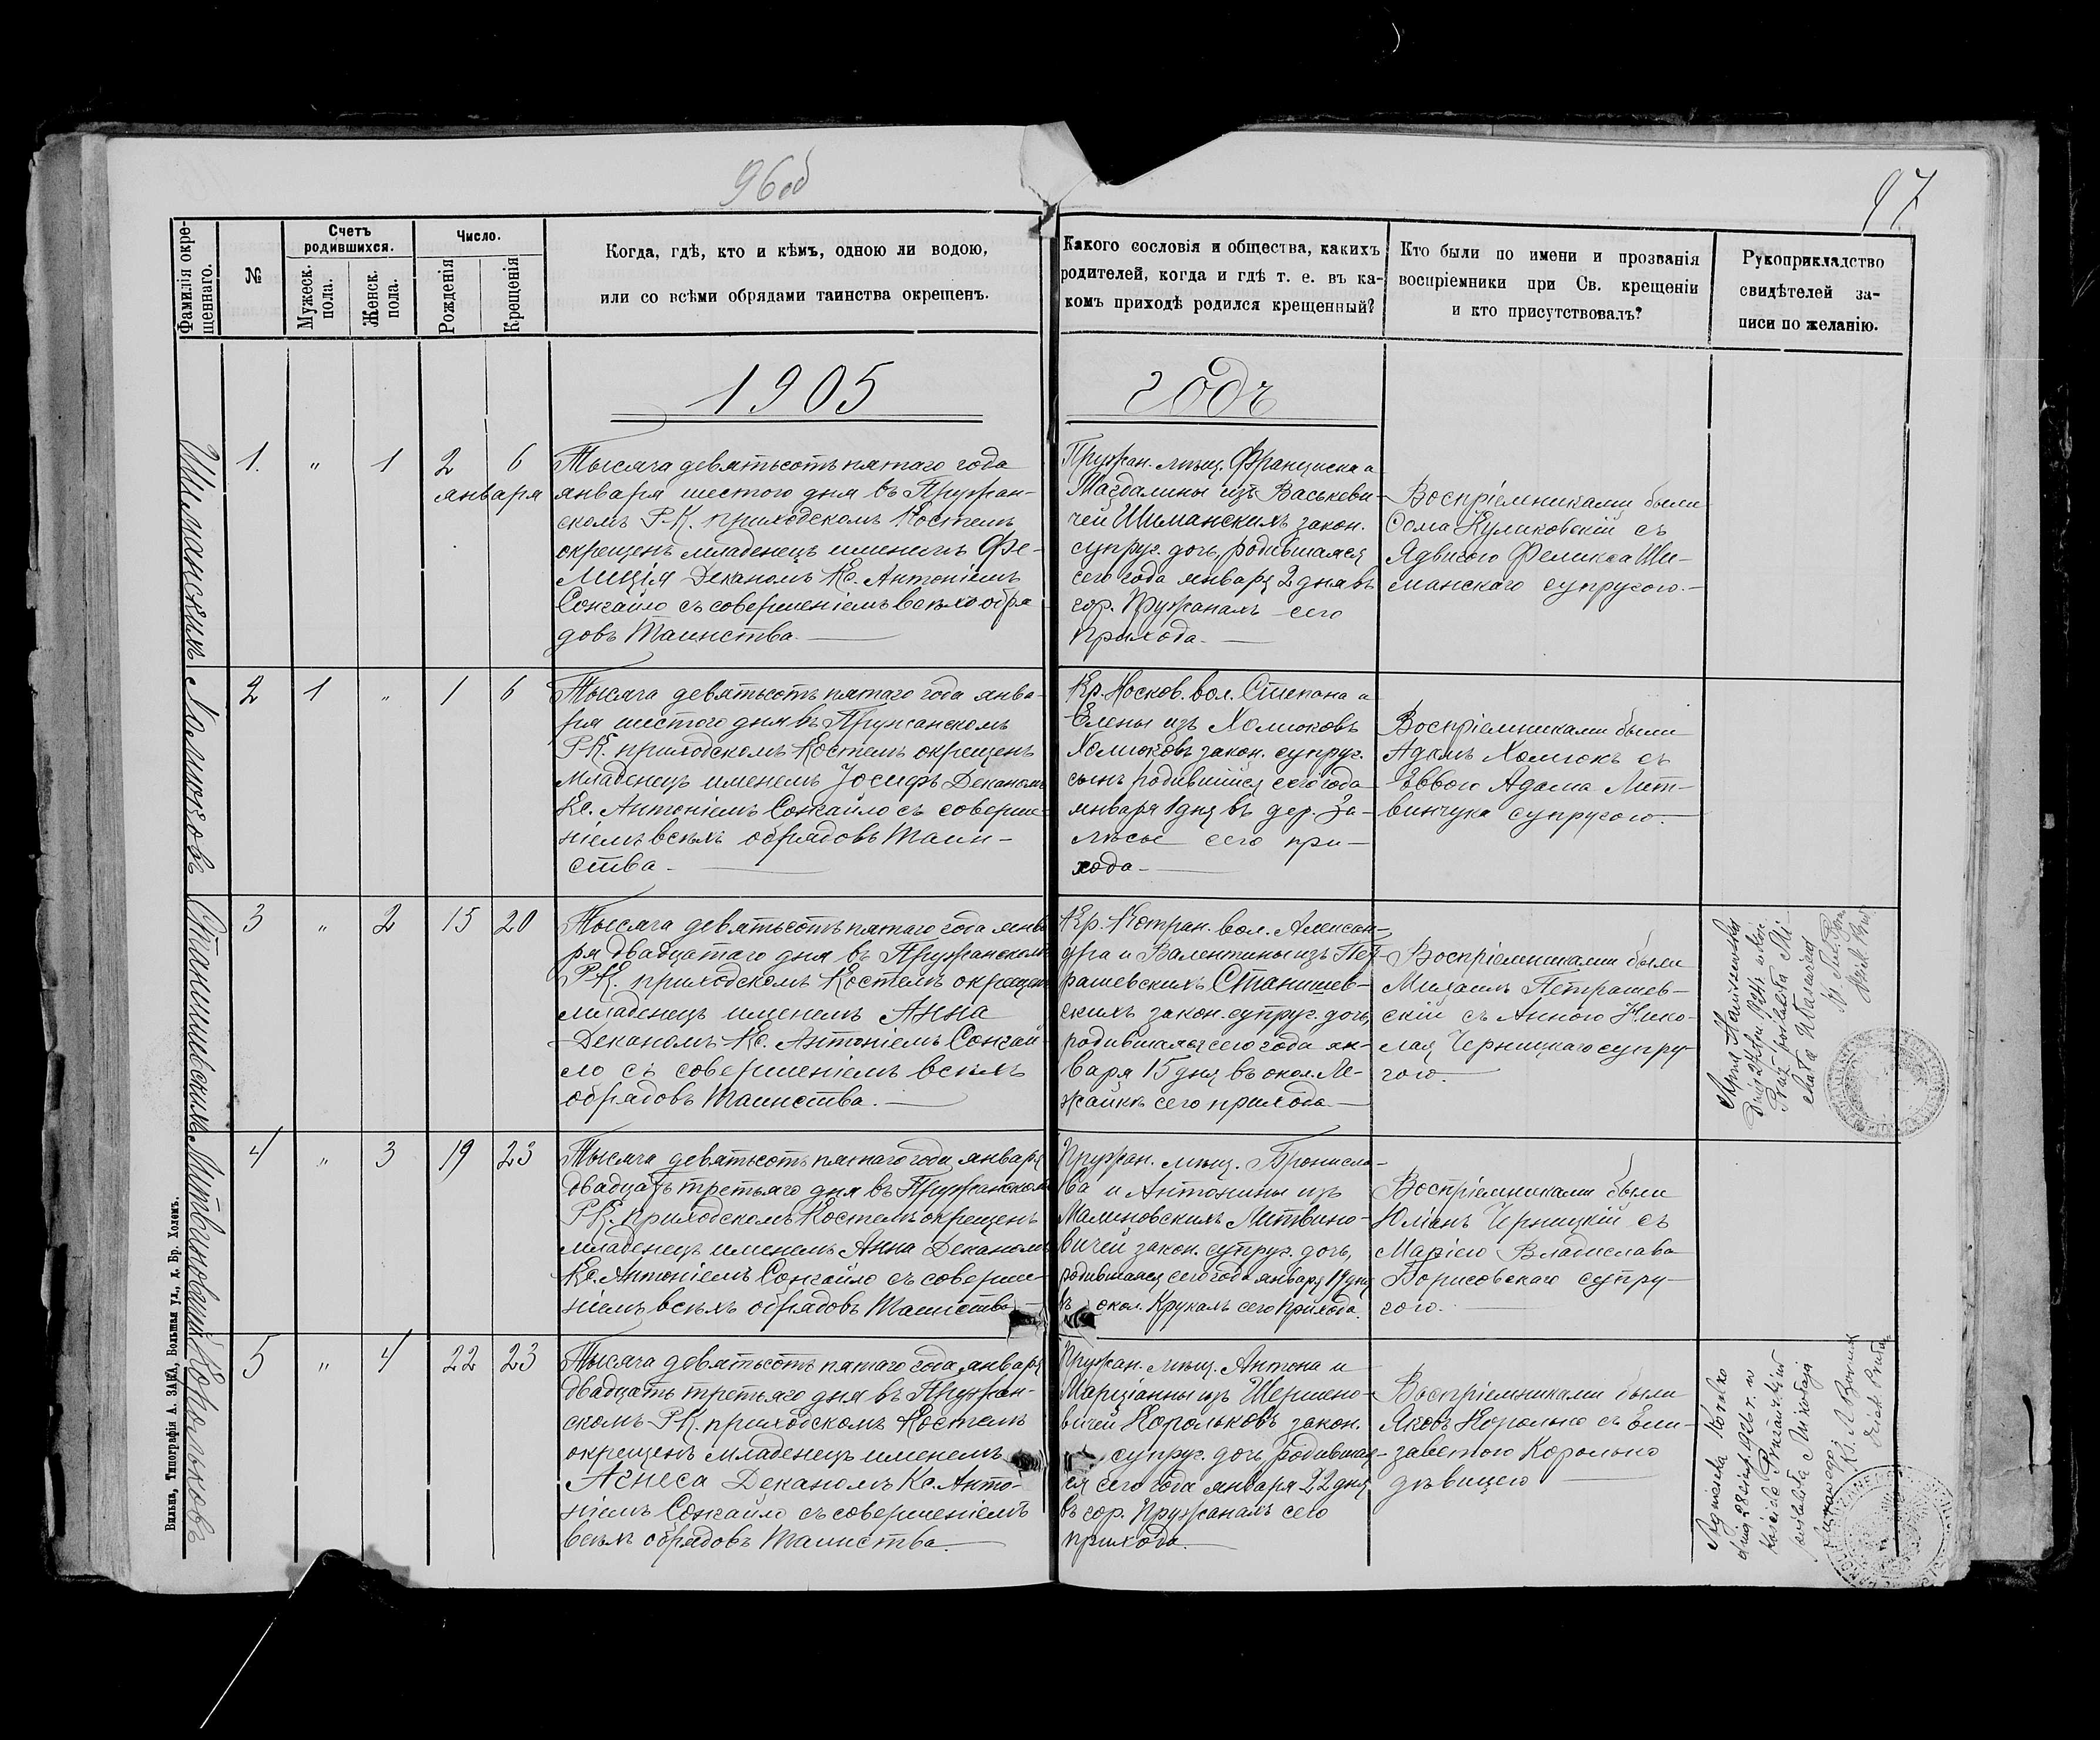 96об
97.
Фамилія окре-
щеннаго.
№
Счетъ
родившихся.
Мужеск.
пола.
Женск.
пола.
Число.
Рожденія
Крещенія
Когда, гдѣ, кто и кѣмъ, одною ли водою,
или со всѣми обрядами таинства окрещенъ.
Какого сословія и общества, какихъ
родителей, когда и гдѣ т. е. въ ка-
комъ приходѣ родился крещенный?
Кто были по имени и прозванія
воспріемники при Св. крещеніи
и кто присутствовалъ?
Рукоприкладство
свидѣтелей за-
писи по желанію.
1905
годъ
Шиманскихъ
1. " 1 2 6
января
Тысяча девятьсотъ пятаго года
января шестого дня въ Пружан-
скомъ Р.К. приходскомъ Костелѣ
окрещенъ младенецъ именемъ Фе-
лиція Деканомъ Кс. Антоніемъ
Сонгайло съ совершеніемъ всѣхъ обря
довъ Таинства.
Пружан. мѣщ. Франциска и
Магдалины изъ Васькеви-
чей Шиманскихъ закон.
супруг. дочь, родившаяся
сего года января 2 дня въ
гор. Пружанахъ сего
прихода.
Воспріемниками были
Сома Куликовскій съ
Ядвигою Феликса Ши-
манскаго супругою.
Холиоковъ
2 1 " 1 6
Тысяча девятьсотъ пятаго года янва-
ря шестого дня въ Пружанскомъ
Р.К. приходскомъ Костелѣ окрещенъ
младенецъ именемъ Іосифъ Деканомъ
Кс. Антоніемъ Сонгайло съ соверше-
ніемъ всѣхъ обрядовъ Таин-
ства.
Кр. Носков. вол. Степана и
Елены изъ Холиоковъ
Холиоковъ закон. супруг.
сынъ родившійся сего года
января 1 дня въ дер. За-
лѣсье сего при-
хода.
Воспріемниками были
Адамъ Холиокъ съ
Еввою Адама Лит-
винчука супругою.
Станишевскихъ
3 " 2 15 20
Тысяча девятьсотъ пятаго года янва
ря двадцатаго дня въ Пружанскомъ
Р.К. приходскомъ Костелѣ окрещенъ
младенецъ именемъ Анна
Деканомъ Кс. Антоніемъ Сонгай-
ло съ совершеніемъ всѣхъ
обрядовъ Таинства.
Кр. Котран. вол. Алексан-
дра и Валентины изъ Пет-
рашевскихъ Станишев-
скихъ закон. супруг. дочь,
родившаяся сего года ян-
варя 15 дня въ окол. Ле-
жайкѣ сего прихода
Воспріемниками были
Михаилъ Петрашев-
скій съ Анною Нико-
лая Черницкаго супру-
гою.
Anna Staniszewska
Литвиновичей
4 " 3 19 23
Тысяча девятьсотъ пятаго года января
двадцать третьяго дня въ Пружанскомъ
Р.К. приходскомъ Костелѣ окрещенъ
младенецъ именемъ Анна Деканомъ
Кс. Антоніемъ Сонгайло съ соверше-
ніемъ всѣхъ обрядовъ Таинства
Пружан. мѣщ. Бронисла-
ва и Антонины изъ
Малиновскихъ Литвино-
вичей закон. супруг. дочь,
родившаяся сего года января 19 дня
въ окол. Крукахъ сего прихода.
Воспріемниками были
Юліанъ Черницкій съ
Маріею Владислава
Борисовскаго супру-
гою.
Корольковъ
5 " 4 22 23
Тысяча девятьсотъ пятаго года января
двадцать третьяго дня въ Пружан-
скомъ Р.К. приходскомъ Костелѣ
окрещенъ младенецъ именемъ
Агнеса Деканомъ Кс. Анто-
ніемъ Сонгайло съ совершеніемъ
всѣхъ обрядовъ Таинства.
Пружан. мѣщ. Антона и
Марціанны изъ Шершено-
вичей Корольковъ закон.
супруг. дочь родившая-
ся сего года января 22 дня
въ гор. Пружанахъ сего
прихода.
Воспріемниками были
Яковъ Королько съ Ели-
заветою Королько
дѣвицею
Agnieszka Korolko
Вильна, Типографія А. ЗАКА, Большая ул., д. Бр. Холемъ.